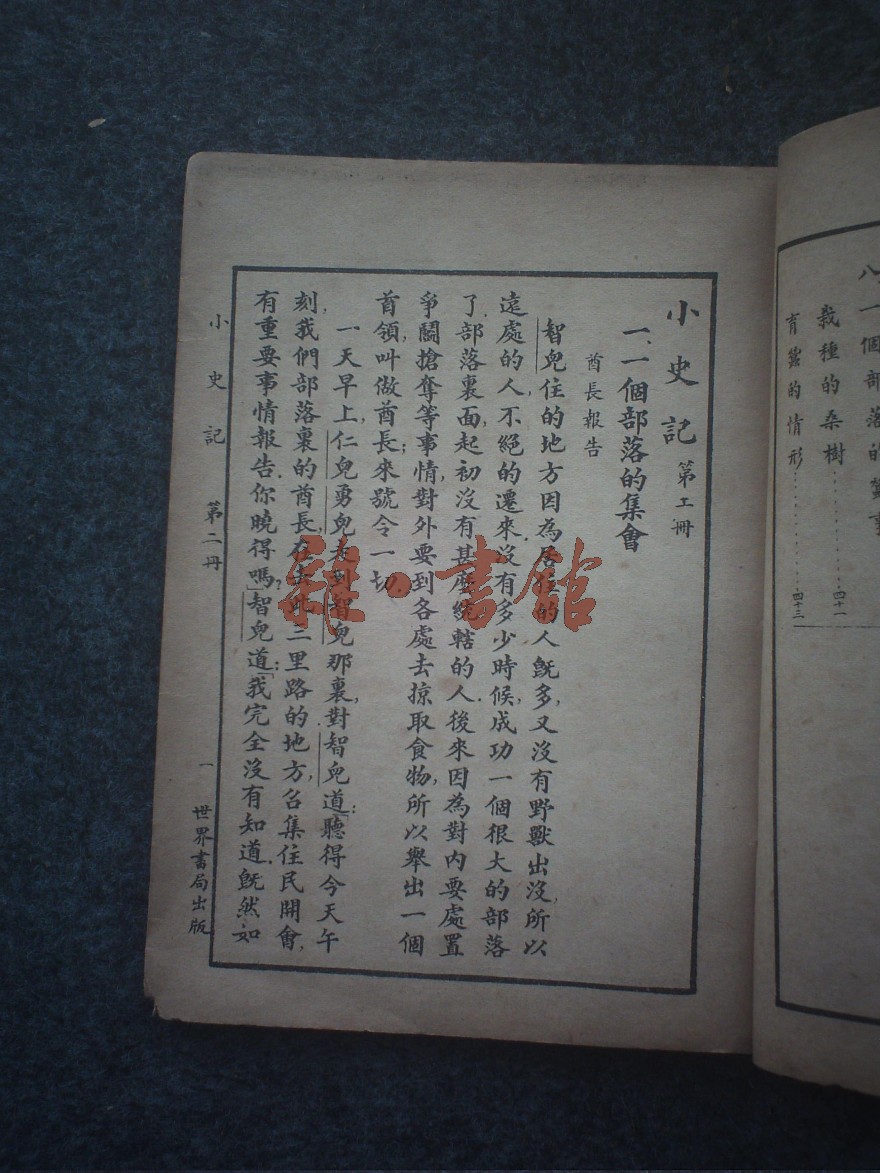 八、一個部落的蠶事
栽種的桑樹............四十一
育蠶的情形............四十三
小史記 第二冊
一、一個部落的集會
酋長報告
智兒住的地方因為居住的人旣多,又沒有野獸出沒,所以
遠處的人,不絕的遷來,沒有多少時候,成功一個很大的部落
了.部落裏面,起初沒有甚麼統轄的人.後來因為對內要處置
爭鬭搶奪等事情,對外要到各處去掠取食物,所以舉出一個
首領,叫做酋長;來號令一切.
一天早上,仁兒勇兒走到智兒那裏,對智兒道:「聽得今天午
刻,我們部落裏的酋長,在去此三里路的地方,召集住民開會,
有重要事情報告.你曉得嗎?」智兒道:「我完全沒有知道.旣然如
小史記 第二冊 一 世界書局出版
雜·書館